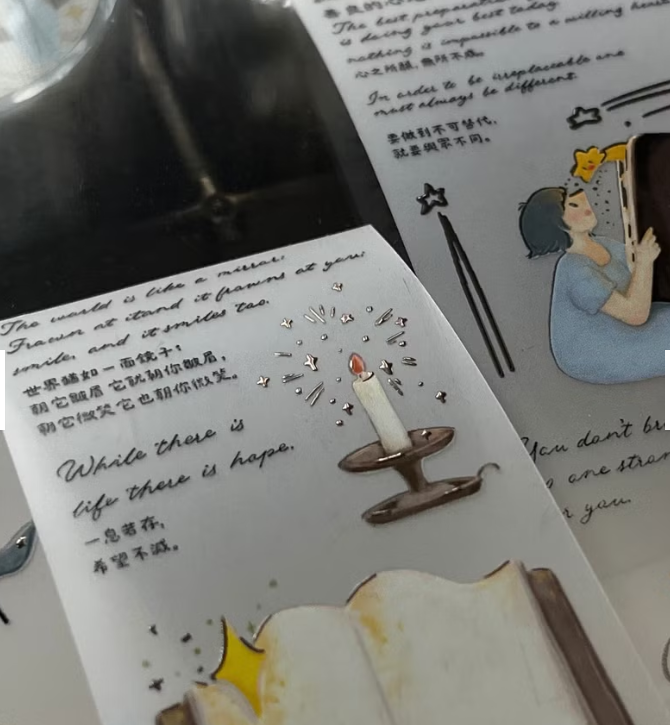 The best preparation
is doing your best today.
nothing is impossible to a willing heart
心之所願，無所不成。
In order to be irreplaceable one
must always be different.
要做到不可替代，
就要與眾不同。
The world is like a mirror:
Frown at itand it frowns at you;
smile, and it smiles too.
世界猶如一面鏡子:
朝它皺眉它就朝你皺眉，
朝它微笑它也朝你微笑。
While there is
life there is hope.
一息若存，
希望不滅。
You don't
one
you.